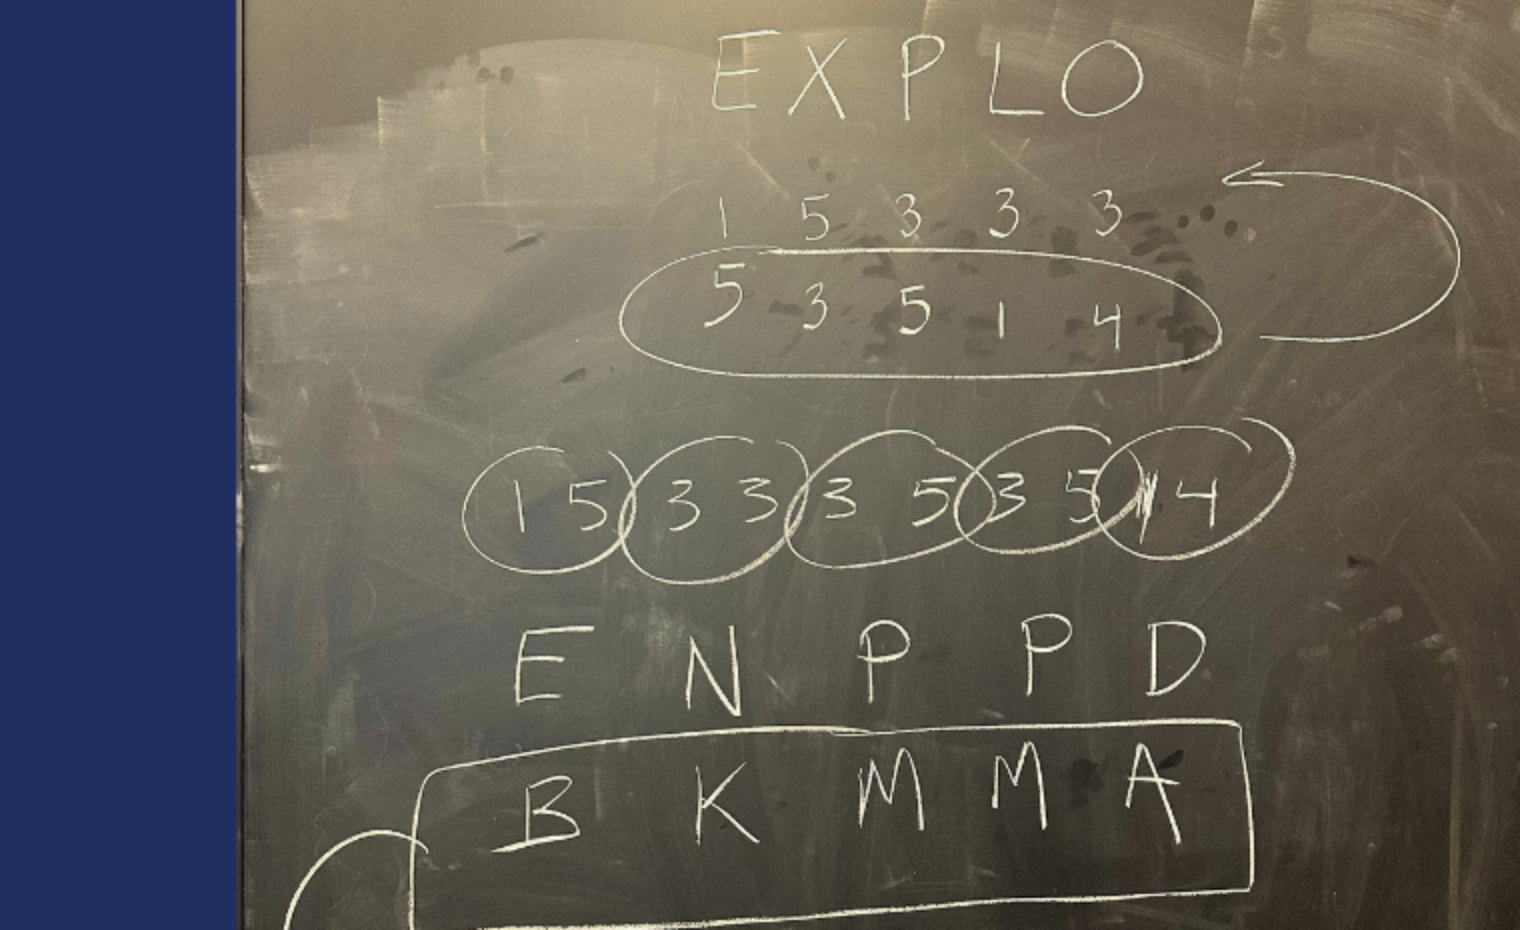 E X P L O
1 5 3 3 3
5 3 5 1 4
1 5 3 3 3 5 3 5 1 4
E N P P D
B K M M A